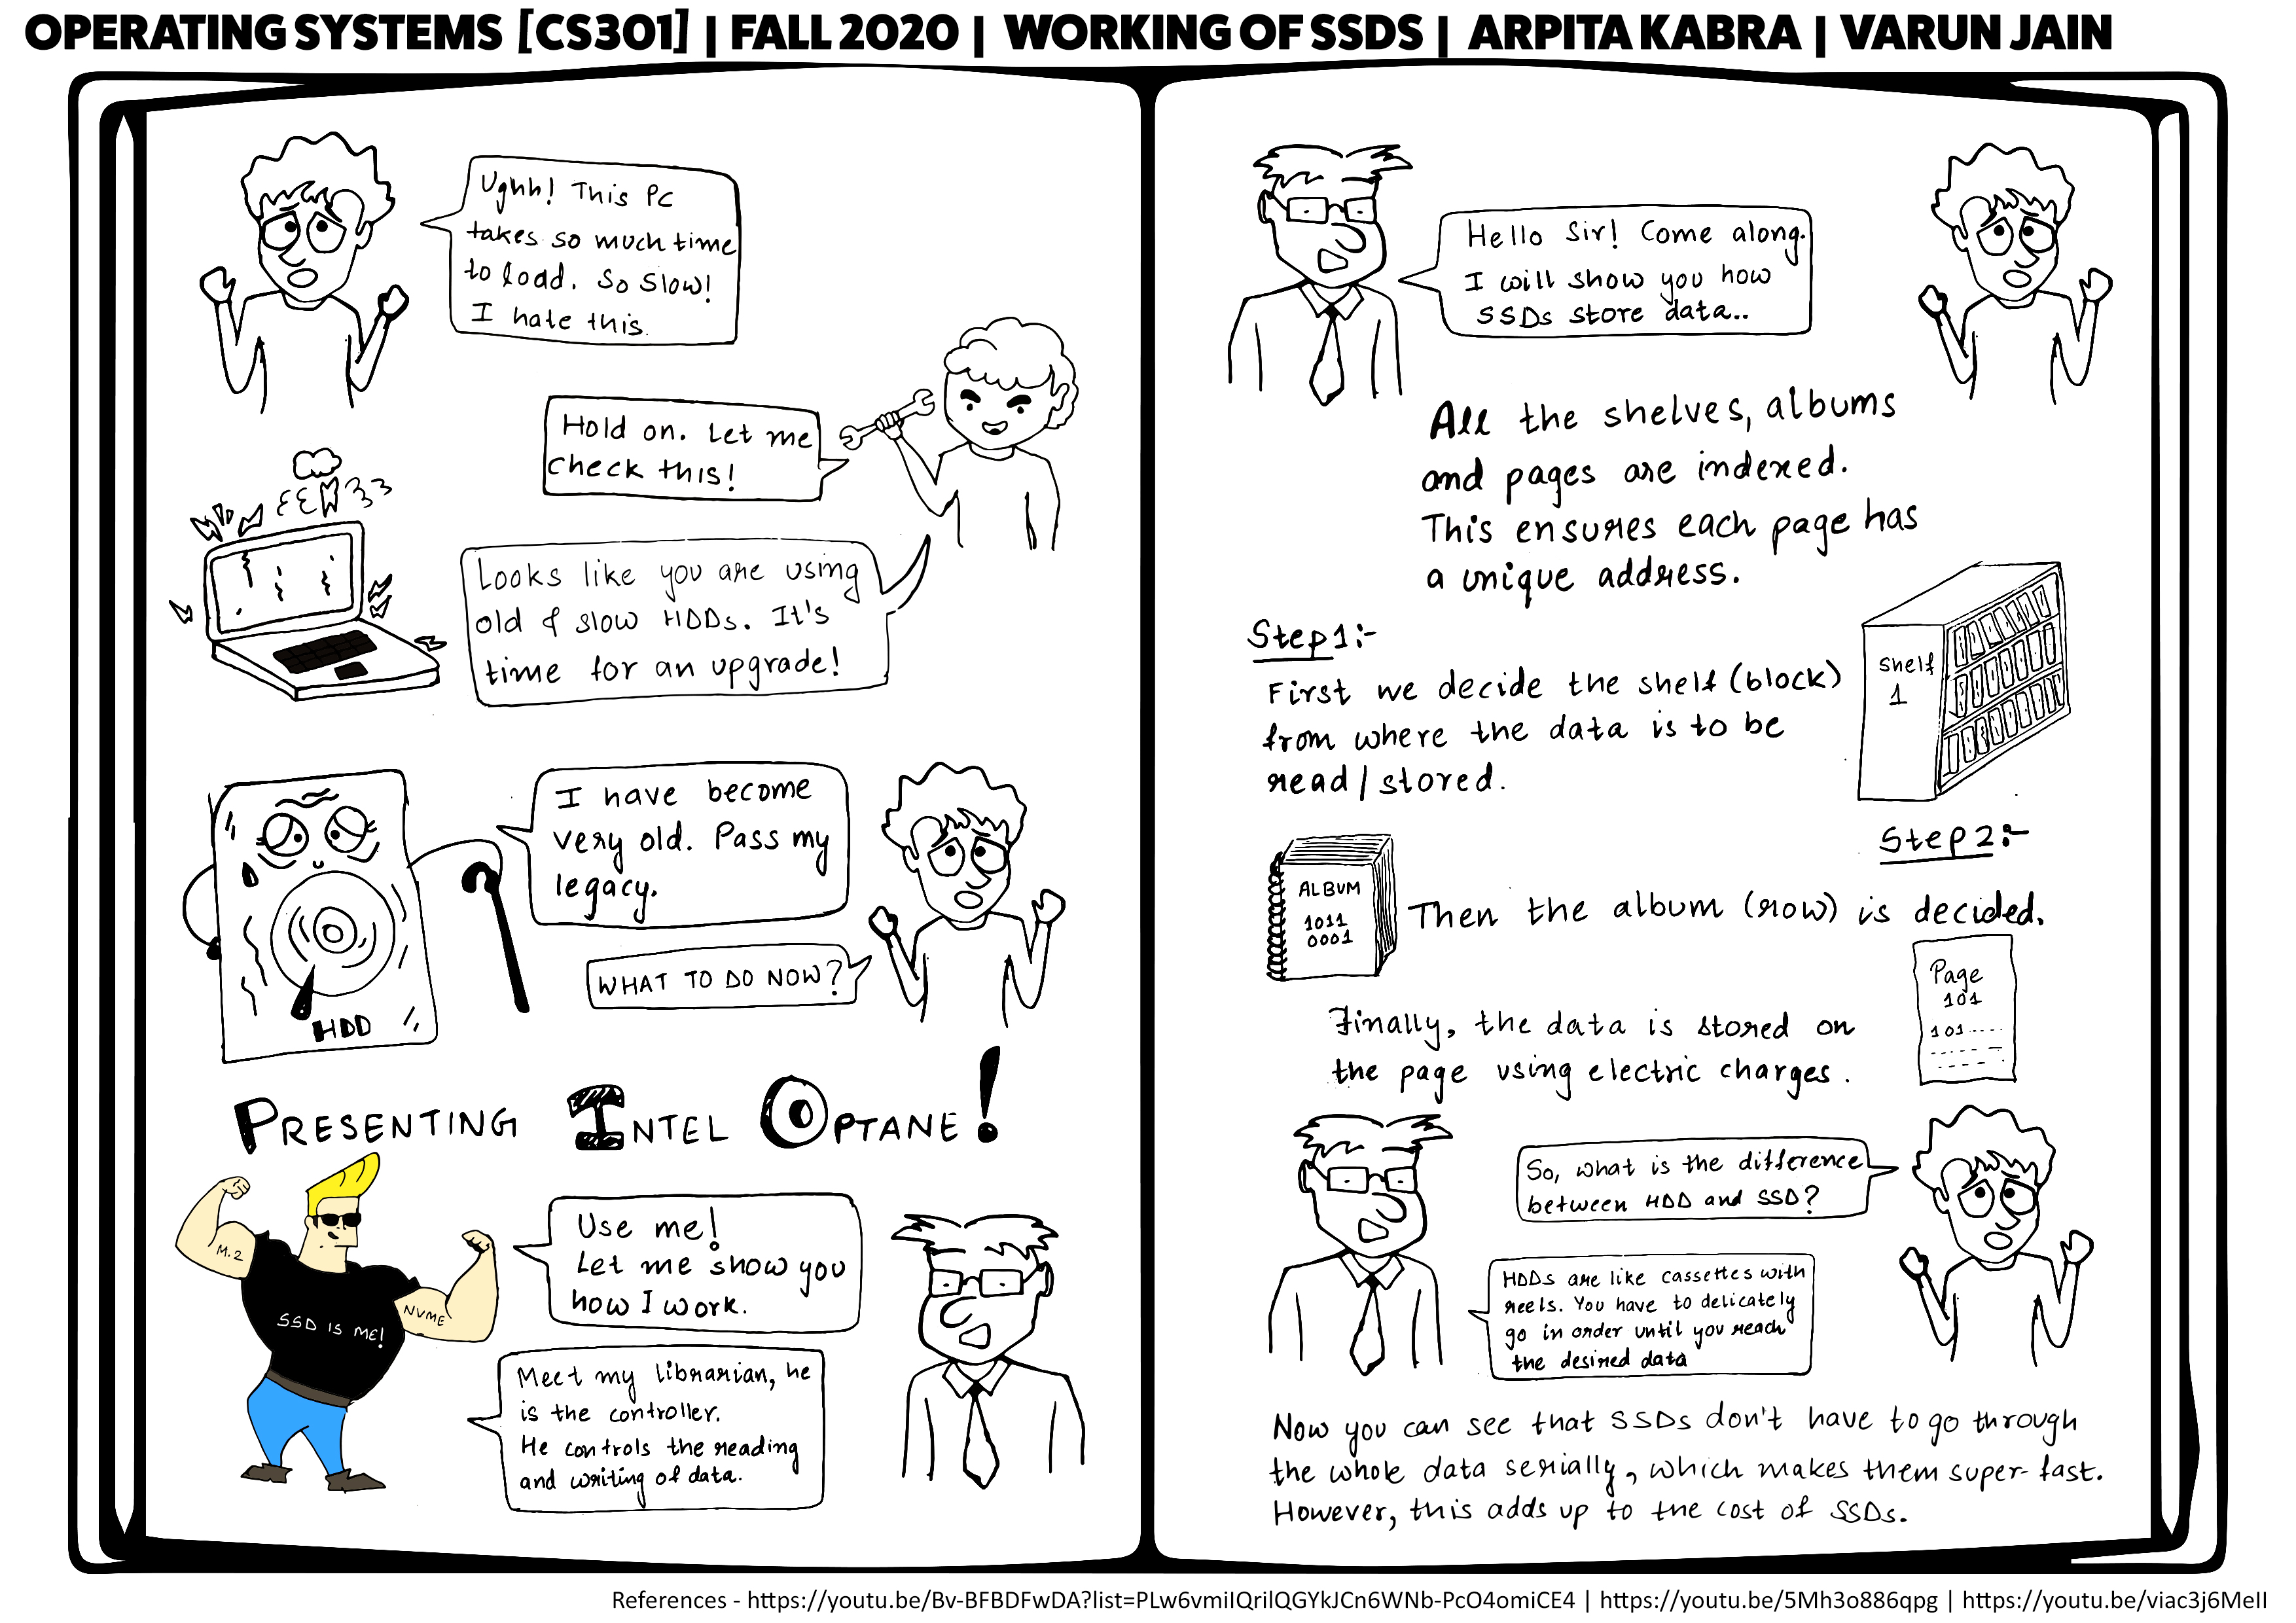 OPERATING SYSTEMS [CS301] | FALL 2020 | WORKING OF SSDS | ARPITA KABRA | VARUN JAIN
Ughh! This PC
takes so much time
to load. So slow!
I hate this.
Hold on. Let me
check this!
Looks like you are using
old & slow HDDs. It's
time for an upgrade!
I have become
very old. Pass my
legacy.
WHAT TO DO NOW?
HDD
PRESENTING INTEL OPTANE!
M.2
SSD IS ME!
NVME
Use me!
Let me show you
how I work.
Meet my librarian, he
is the controller.
He controls the reading
and writing of data.
Hello Sir! Come along.
I will show you how
SSDs store data..
All the shelves, albums
and pages are indexed.
This ensures each page has
a unique address.
Step1:-
First we decide the shelf (block)
from where the data is to be
read/stored.
Shelf
1
Step2:-
ALBUM
1011
0001
Then the album (row) is decided.
Page
101
101.....
Finally, the data is stored on
the page using electric charges.
So, what is the difference
between HDD and SSD?
HDDs are like cassettes with
reels. You have to delicately
go in order until you reach
the desired data
Now you can see that SSDs don't have to go through
the whole data serially, which makes them super-fast.
However, this adds up to the cost of SSDs.
References - https://youtu.be/Bv-BFBDFwDA?list=PLw6vmiIQrilQGYkJCn6WNb-PcO4omiCE4 | https://youtu.be/5Mh3o886qpg | https://youtu.be/viac3j6MeII